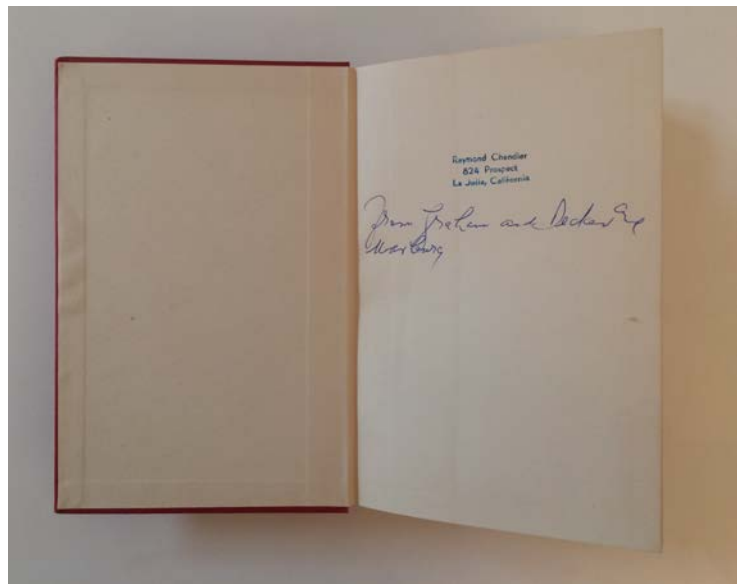 Raymond Chandler
824 Prospect
La Jolla, California
From Graham and
Warburg